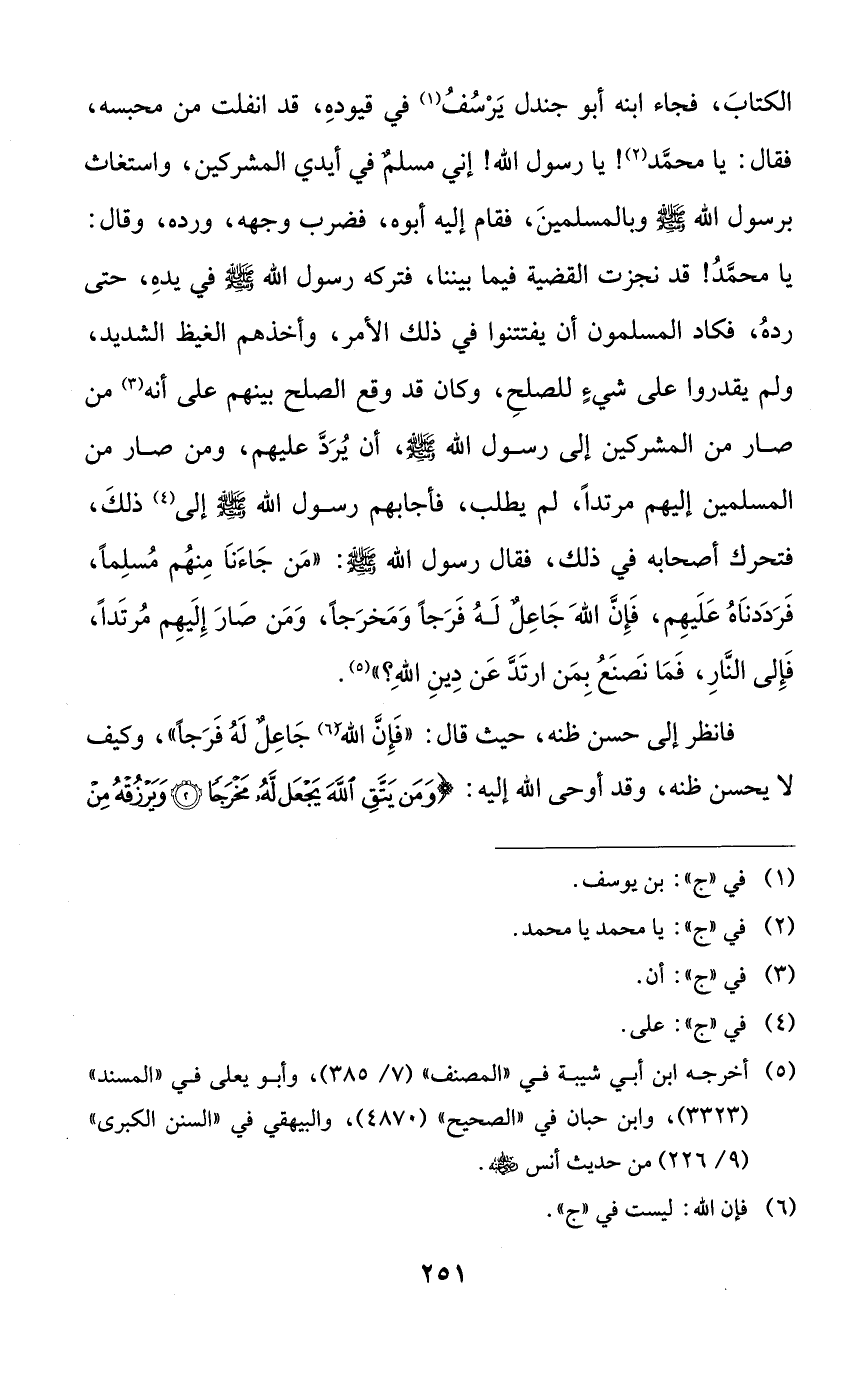 الكتابَ، فجاء ابنه أبو جندل يَرْسُفُ(١) في قيودهِ، قد انفلت من محبسه،
فقال: يا محمَّد(٢)! يا رسول الله! إني مسلمٌ في أيدي المشركين، واستغاث
برسول الله ﷺ وبالمسلمينَ، فقام إليه أبوه، فضرب وجهه، ورده، وقال:
يا محمَّدُ! قد نجزت القضية فيما بيننا، فتركه رسول الله ﷺ في يدهِ، حتى
ردهُ، فكاد المسلمون أن يفتتنوا في ذلك الأمر، وأخذهم الغيظ الشديد،
ولم يقدروا على شيءٍ للصلحِ، وكان قد وقع الصلح بينهم على أنه(٣) من
صار من المشركين إلى رسول الله ﷺ، أن يُرَدَّ عليهم، ومن صار من
المسلمين إليهم مرتداً، لم يطلب، فأجابهم رسول الله ﷺ إلى(٤) ذلكَ،
فتحرك أصحابه في ذلك، فقال رسول الله ﷺ: «مَن جَاءَنَا مِنهُم مُسلِماً،
فَرَدَدنَاهُ عَلَيهِم، فَإِنَّ اللهَ جَاعِلٌ لَهُ فَرَجاً وَمَخرَجاً، وَمَن صَارَ إِلَيهِم مُرتَداً،
فَإِلى النَّارِ، فَمَا نَصنَعُ بِمَن ارتَدَّ عَن دِينِ اللهِ؟»(٥).
فانظر إلى حسن ظنه، حيث قال: «فَإِنَّ الله(٦) جَاعِلٌ لَهُ فَرَجاً»، وكيف
لا يحسن ظنه، وقد أوحى الله إليه: ﴿وَمَن يَتَّقِ ٱللَّهَ يَجْعَل لَّهُۥ مَخْرَجًا ۝٢ وَيَرْزُقْهُ مِنْ
(١) في «ج»: بن يوسف.
(٢) في «ج»: يا محمد يا محمد.
(٣) في «ج»: أن.
(٤) في «ج»: على.
(٥) أخرجه ابن أبي شيبة في «المصنف» (٧/ ٣٨٥)، وأبو يعلى في «المسند»
(٣٣٢٣)، وابن حبان في «الصحيح» (٤٨٧٠)، والبيهقي في «السنن الكبرى»
(٩/ ٢٢٦) من حديث أنس رضي الله عنه.
(٦) فإن الله: ليست في «ج».
٢٥١